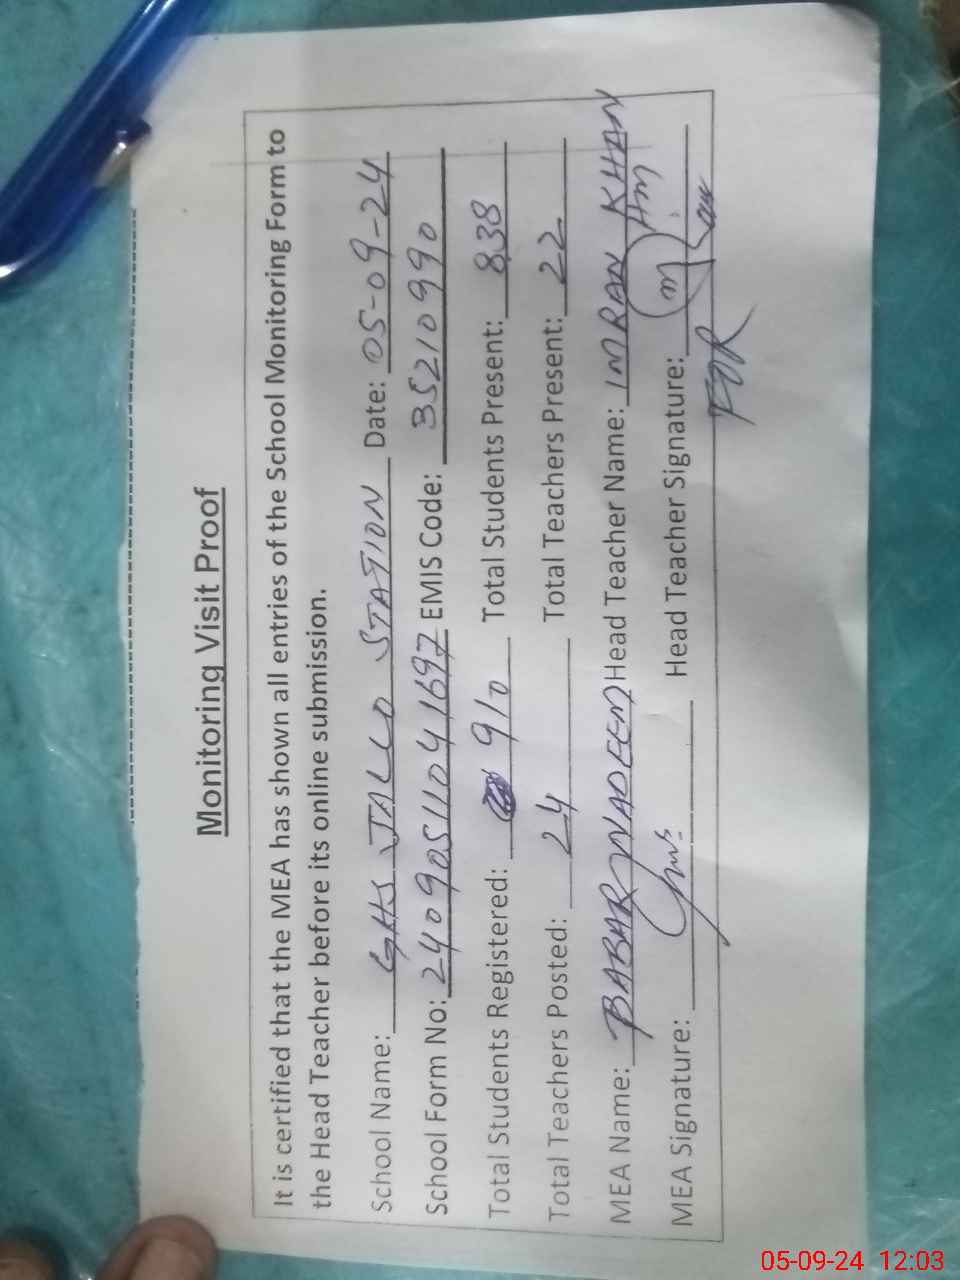 Monitoring Visit Proof
It is certified that the MEA has shown all entries of the School Monitoring Form to
the Head Teacher before its online submission.
School Name: GHS JALLO STATION Date: 05-09-24
School Form No: 24090511041697 EMIS Code: 35210990
Total Students Registered: 910 Total Students Present: 838
Total Teachers Posted: 24 Total Teachers Present: 22
MEA Name: BABAR NADEEM Head Teacher Name: IMRAN KHAN
MEA Signature: Head Teacher Signature: Hm
FOR
05-09-24 12:03